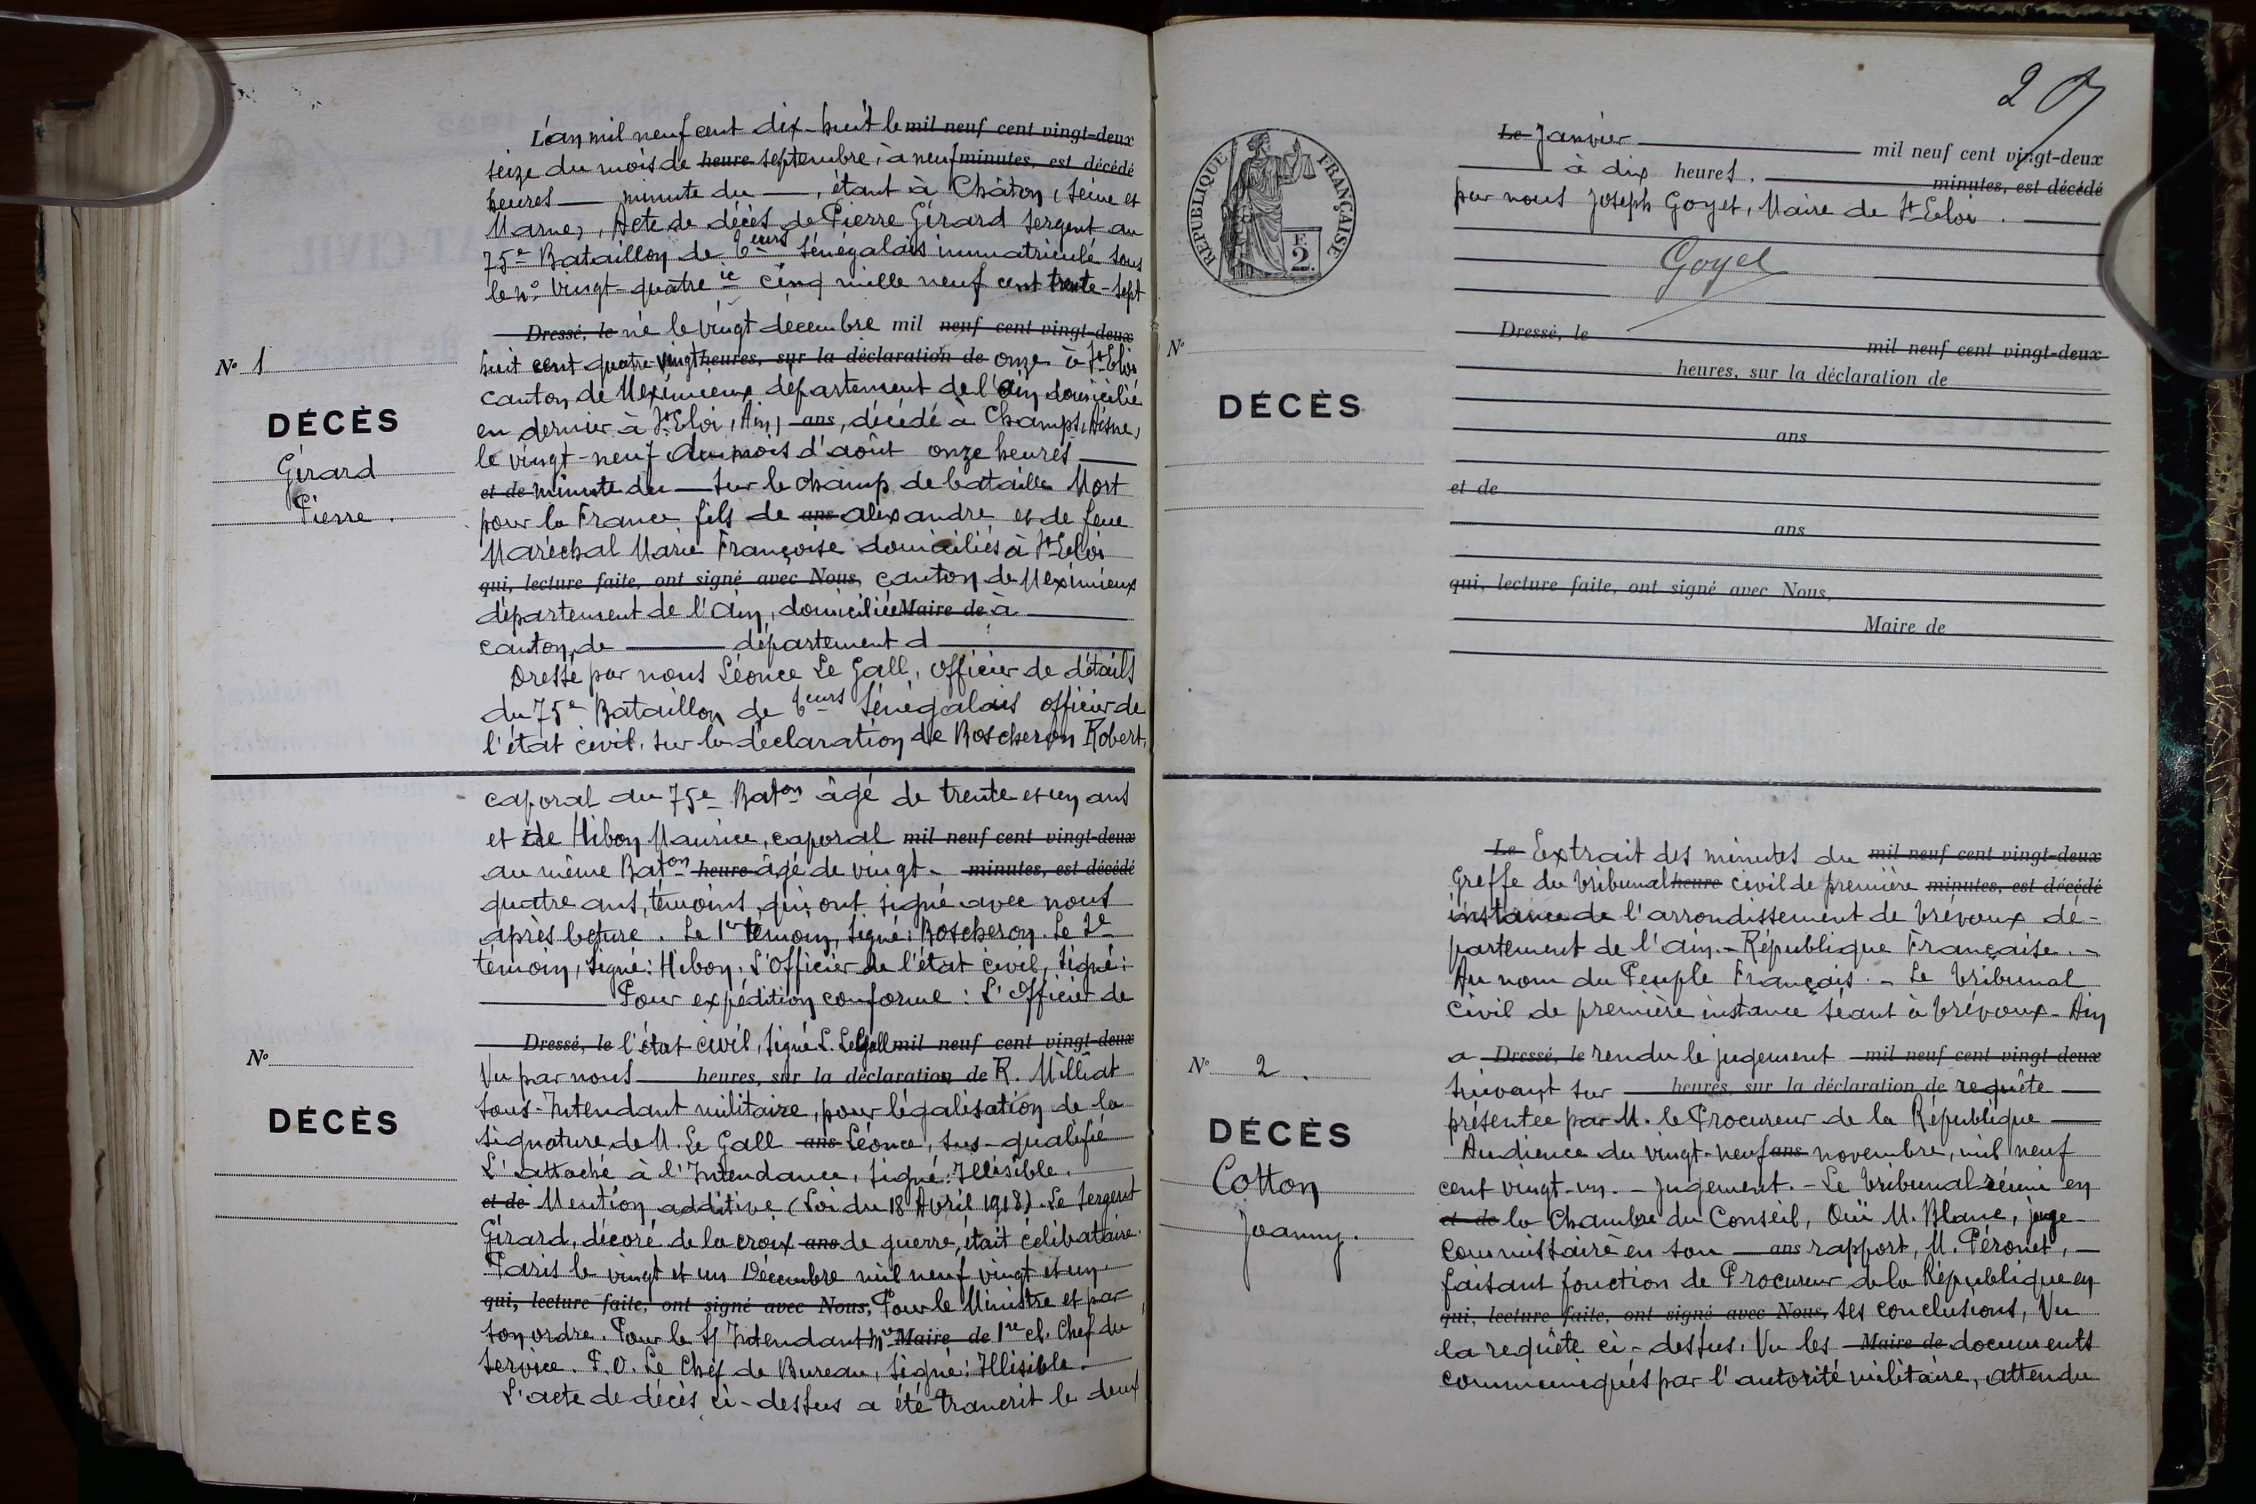 L'an mil neuf cent dix-huit le mil neuf cent vingt-deux
seize du mois de heure septembre, à neuf minutes, est décédé
heures — minute du —, étant à Châton, (Seine et
Marne), Acte de décès de Pierre Gérard Sergent au
75e Bataillon de Teurs Sénégalais immatriculé sous
le No vingt-quatre ie cinq mille neuf cent trente-sept
Dressé, le né le vingt decembre mil neuf cent vingt-deux
huit cent quatre vingt heures, sur la déclaration de onze à St Eloi
canton de Meximieux département de l'Ain domicilié
en dernier à St Eloi, (Ain) ans, décédé à Champs, (Aisne)
le vingt-neuf du mois d'août onze heures —
et de minute du — sur le champ de bataille Mort
pour la France fils de ans alexandre et de feue
Maréchal Marie Françoise domiciliés à St Eloi
qui, lecture faite, ont signé avec Nous, canton de Meximieux
département de l'Ain, domiciliée Maire de à —
canton de — département d —
Dressé par nous Léonce Le Gall, officier de détails
du 75e Bataillon de Teurs Sénégalais officier de
l'état civil, sur la déclaration de Boscheron Robert,
No 1
DÉCÈS
Gérard
Pierre.
caporal au 75e Baton âgé de trente et un ans
et de Hibon Maurice, caporal mil neuf cent vingt-deux
au même Baton heure âgé de vingt- minutes, est décédé
quatre ans, témoins qui ont signé avec nous
après lecture. Le 1er témoin, signé: Boscheron. Le 2e
témoin, signé: Hibon. L'Officier de l'état civil, signé:
— Pour expédition conforme: L'Officier de
Dressé, le l'état civil, signé L. Le Gall mil neuf cent vingt-deux
Vu par nous — heures, sur la déclaration de R. Milliat
sous-Intendant militaire, pour légalisation de la
signature de M. Le Gall ans Léonce, sus-qualifié
L'attaché à l'Intendance, signé: Illisible.
et de Mention additive (Loi du 18 Avril 1918). Le Sergent
Gérard, décoré de la croix ans de guerre, était célibataire.
Paris le vingt et un Décembre mil neuf vingt et un
qui, lecture faite, ont signé avec Nous, Pour le Ministre et par
son ordre. Pour le S/ Intendant Mre Maire de 1re cl. Chef du
Service. P.O. Le Chef de Bureau, signé: Illisible.
L'acte de décès ci-dessus a été trancrit le deux
No
DÉCÈS
207
RÉPUBLIQUE FRANÇAISE
F.
2.
Le Janvier — mil neuf cent vingt-deux
— à dix heures. — minutes, est décédé
par nous Joseph Goyet, Maire de St Eloi. —
Goyet
Dressé, le mil neuf cent vingt-deux
heures, sur la déclaration de
ans
et de
ans
qui, lecture faite, ont signé avec Nous,
Maire de
No
DÉCÈS
Le Extrait des minutes du mil neuf cent vingt-deux
Greffe du tribunal heure civil de première minutes, est décédé
instance de l'arrondissement de Trévoux dé-
partement de l'ain. - République Française. -
Au nom du Peuple Français. - Le Tribunal
Civil de première instance séant à Trévoux - Ain
a Dressé, le rendu le jugement mil neuf cent vingt-deux
suivant sur — heures, sur la déclaration de requête —
présentée par M. le Procureur de la République —
Audience du vingt-neuf ans novembre, mil neuf
cent vingt-un. - Jugement. - Le Tribunal réuni en
et de la Chambre du Conseil, Ouï M. Blanc, juge-
commissaire en son — ans rapport, M. Péronet, —
faisant fonction de Procureur de la République en
qui, lecture faite, ont signé avec Nous, ses conclusions, Vu
la requête ci-dessus. Vu les Maire de documents
communiqués par l'autorité militaire, attendu
No 2.
DÉCÈS
Cotton
Joanny.